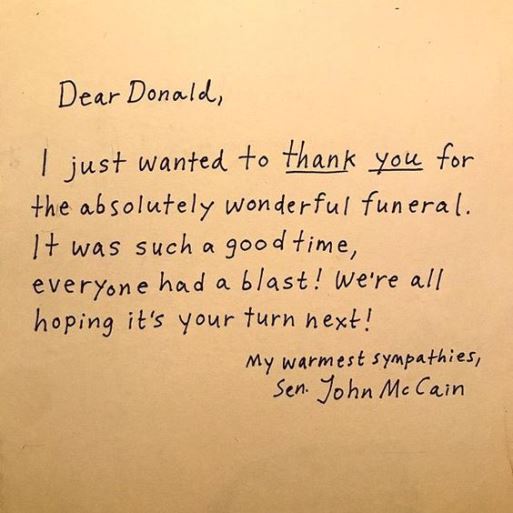 Dear Donald,
I just wanted to thank you for
the absolutely wonderful funeral.
It was such a good time,
everyone had a blast! We're all
hoping it's your turn next!
My warmest sympathies,
Sen. John McCain